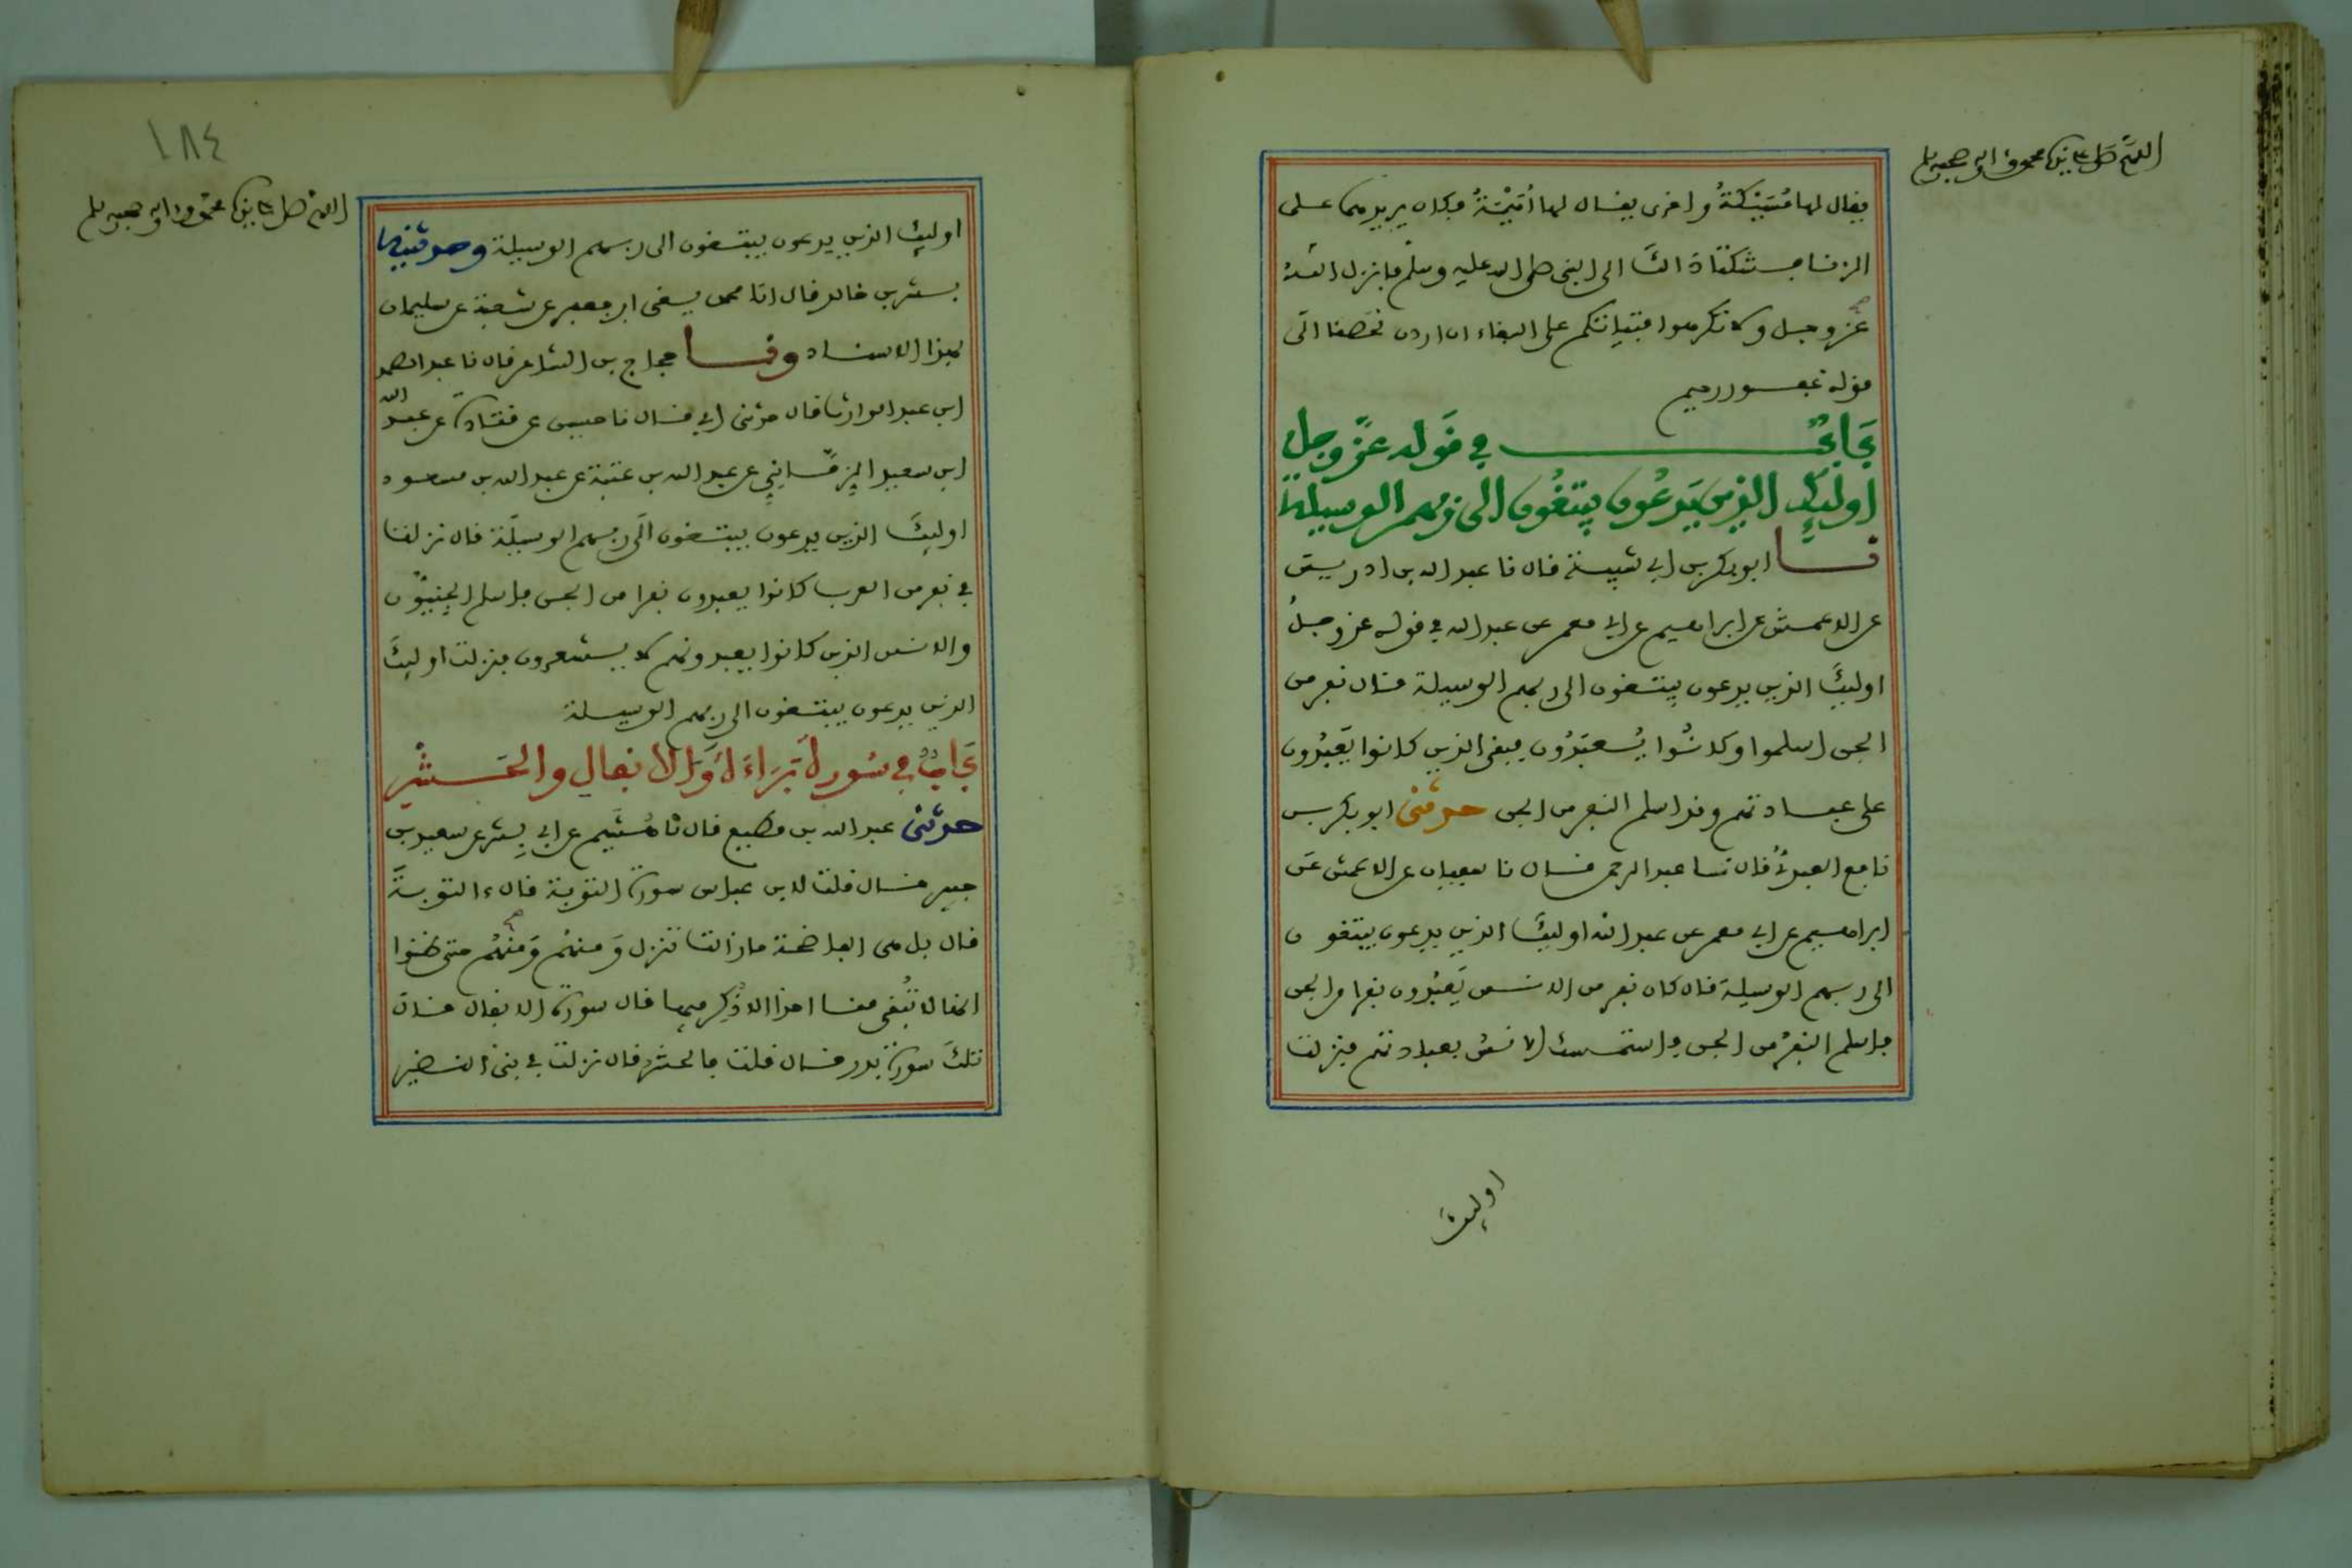 اللهم صل على نبينا محمد وءاله وصحبه وسلم
يقال لها مُسَيْكَةُ واخرى يقال لها أُمَيْمَةُ فكان يريدهما على
الزنا فشكتا ذالك الى النبى صلى الله عليه وسلم فانزل الله
عز وجل ولا تكرهوا فتياتكم على البغاء ان اردن تحصنا الى
قوله غفور رحيم
بَابٌ في قوله عزّ وجل
اوليك الذين يَدعُون يبتغُون الى ربهم الوسيلة
نا ابو بكر بن ابي شيبة قال نا عبد الله بن ادريس
عن الاعمش عن ابراهيم عن ابي معمر عن عبد الله في قوله عز وجل
اوليك الذين يدعون يبتغون الى ربهم الوسيلة قال نفر من
الجن اسلموا وكانُوا يُعبَدُون فبقى الذين كانوا يَعبُدون
على عبادتهم وقد اسلم النفر من الجن حدثنى ابو بكر بن
نافع العبدي قال نا عبد الرحمن قال نا سفيان عن الاعمش عن
ابراهيم عن ابي معمر عن عبد الله اوليك الذين يدعون يبتغون
الى ربهم الوسيلة قال كان نفر من الانس يَعبُدون نفرا من الجن
فاسلم النفر من الجن واستمسك الانس بعبادتهم فنزلت
اوليك
١٨٤
اللهم صل على نبينا محمد وءاله وصحبه وسلم
اوليك الذين يدعون يبتغون الى ربهم الوسيلة وحدثنيه
بشر بن خالد قال انا محمد يعنى ابن جعفر عن شعبة عن سليمان
بهذا الاسناد ونا حجاج بن الشاعر قال نا عبد الصمد
ابن عبد الوارث قال حدثنى ابي قال نا حسين عن قتادة عن عبد الله
ابن معبد الزِمَّاني عن عبد الله بن عتبة عن عبد الله بن مسعود
اوليك الذين يدعون يبتغون الى ربهم الوسيلة قال نزلت
في نفر من العرب كانوا يعبدون نفرا من الجن فاسلم الجنيّون
والانس الذين كانوا يعبدونهم لا يشعرون فنزلت اوليك
الذين يدعون يبتغون الى ربهم الوسيلة
بَابٌ في سُورة بَرَاءَة وَالانفال والحشر
حدثنى عبد الله بن مطيع قال نا هُشَيم عن ابي بِشر عن سعيد بن
جبير قال قلت لابن عباس سورة التوبة قال ءالتوبة
قال بل هى الفاضحة ما زالت تنزل وَمنهم وَمنهُم حتى ظنوا
ان لا تُبْقى منا احدا الا ذُكِر فيها قال سورة الانفال قال
تلك سورة بدر قال قلت فالحشر قال نزلت في بنى النضير